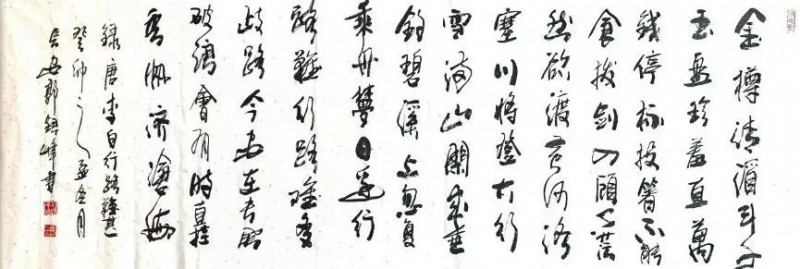 金樽清酒斗十千
玉盘珍羞直萬
錢停杯投箸不能
食拔剑四顧心茫
然欲渡黄河冰
塞川将登太行
雪满山閑来垂
钓碧溪上忽复
乘舟梦日边行
路難行路難多
歧路今安在长风
破浪會有时直挂
雲帆濟滄海
録唐李白行路難其一
癸卯之孟冬月
长安郭 峰書